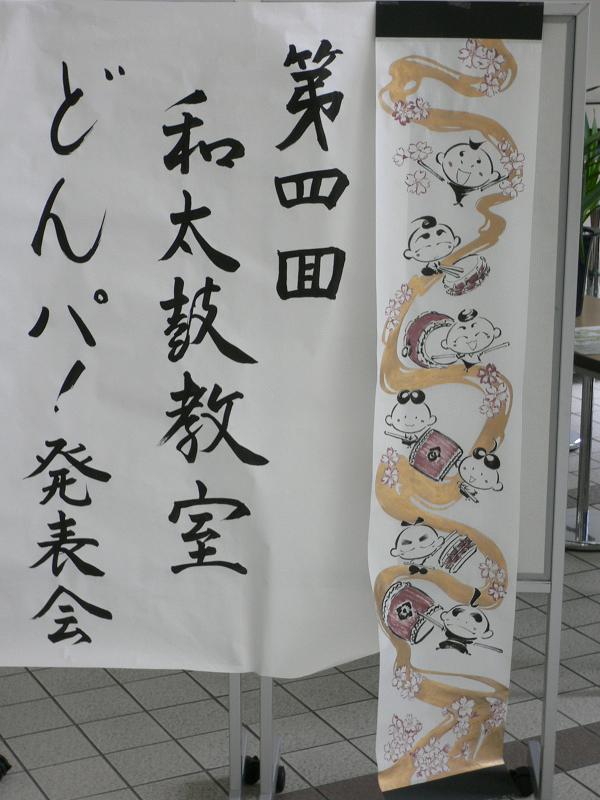 第四回
和太鼓教室
どんパ!発表会